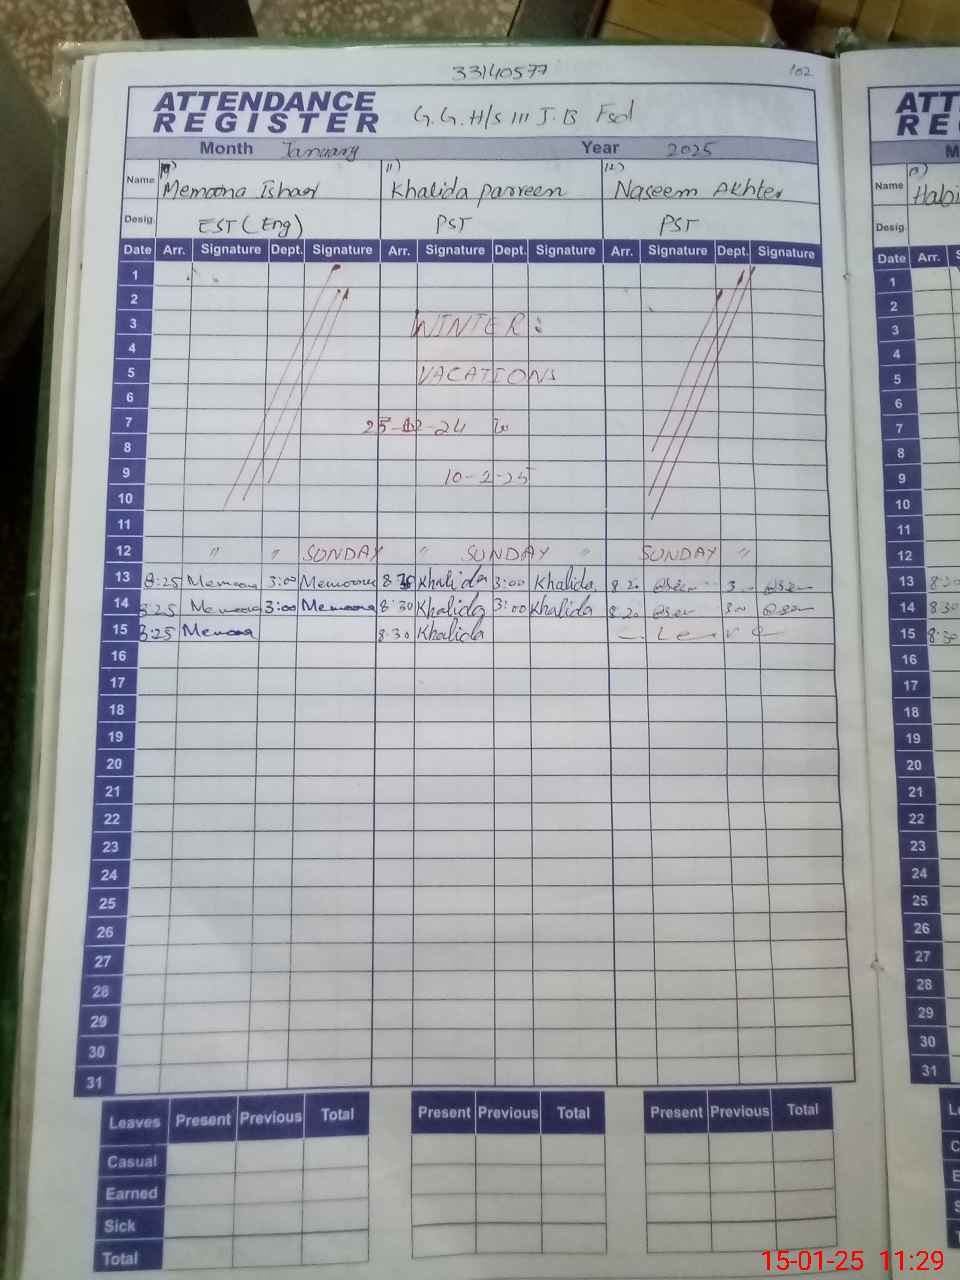 33140577 102
ATTENDANCE
REGISTER G.G.H/S 111 J.B Fsd
Month January Year 2025
Name Memoona Ishaq 11) Khalida parveen 12) Naseem Akhter
Desig. EST (Eng) PST PST
Date Arr. Signature Dept. Signature Arr. Signature Dept. Signature Arr. Signature Dept. Signature
1
2
3 WINTER :
4
5 VACATIONS
6
7 25-12-24 to
8
9 10-2-25
10
11
12 " " SUNDAY " SUNDAY " SUNDAY "
13 8:25 Memoona 3:00 Memoona Khalida 3:00 Khalida 8.20
14 8:25 Memoona 3:00 Memoona 8:30 Khalida 3:00 Khalida 8.20
15 8:25 Memoona 8.30 Khalida Leave
16
17
18
19
20
21
22
23
24
25
26
27
28
29
30
31
Leaves Present Previous Total Present Previous Total Present Previous Total
Casual
Earned
Sick
Total
ATT
RE
M
Name
Desig.
Date Arr. S
1
2
3
4
5
6
7
8
9
10
11
12
13
14 8:30
15 8:30
16
17
18
19
20
21
22
23
24
25
26
27
28
29
30
31
15-01-25 11:29